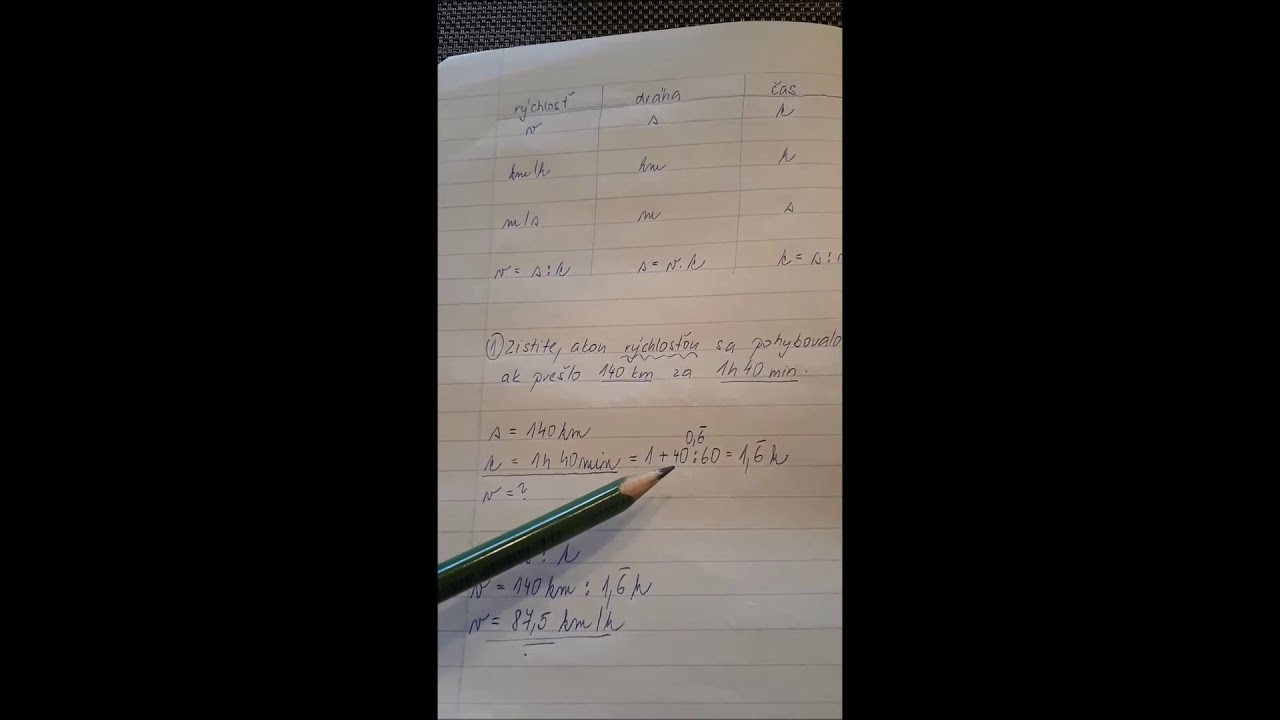 rýchlosť dráha čas
v s t
km/h km h
m/s m s
v = s : t s = v . t t = s :
① Zistite, akou rýchlosťou sa pohybovalo
ak prešlo 140 km za 1h 40 min.
s = 140 km
0,6̅
t = 1h 40 min = 1 + 40 : 60 = 1,6̅ h
v = ?
: t
v = 140 km : 1,6̅ h
v = 87,5 km/h